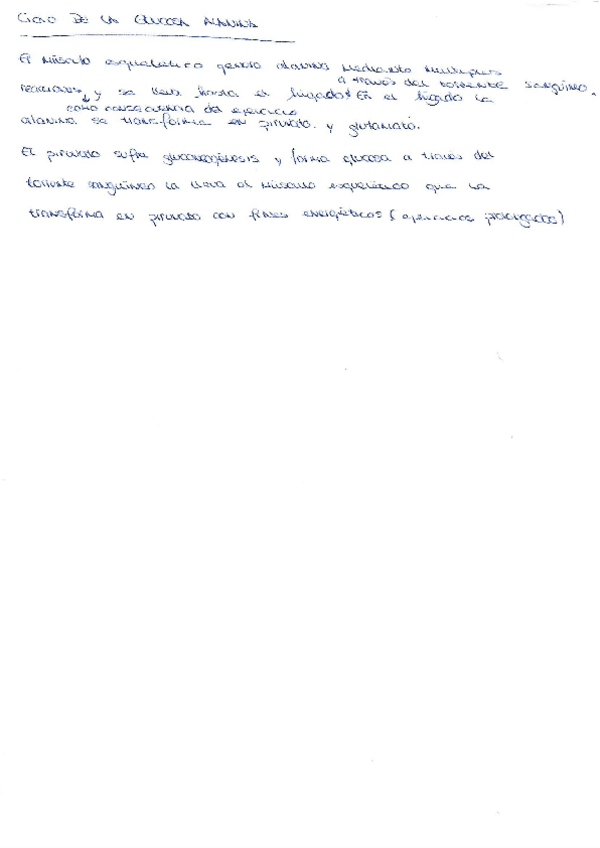 CICLO DE LA GLUCOSA ALANINA
El músculo esquelético genera alanina mediante múltiples
a través del torrente sanguíneo.
reacciones y se lleva hasta el hígado. En el hígado la
como consecuencia del ejercicio
alanina se transforma en piruvato y glutamato.
El piruvato sufre gluconeogénesis y forma glucosa a través del
torrente sanguíneo la lleva al músculo esquelético que la
transforma en piruvato con fines energéticos (ejercicios prolongados)